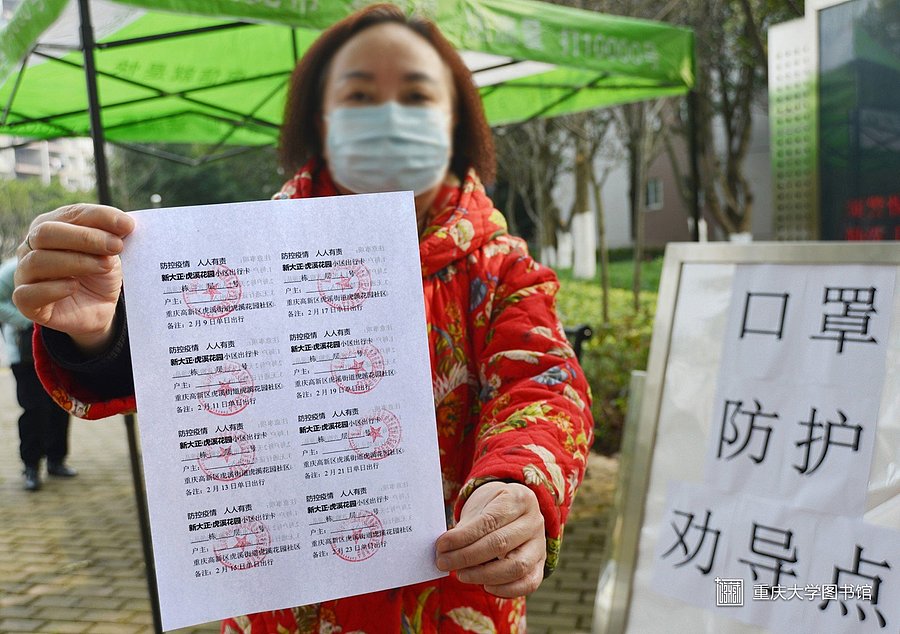 防控疫情 人人有责
新大正·虎溪花园小区出行卡
栋 层 号
户主：
重庆高新区虎溪街道虎溪花园社区
备注：2月9日单日出行
防控疫情 人人有责
新大正·虎溪花园小区出行卡
栋 层 号
户主：
重庆高新区虎溪街道虎溪花园社区
备注：2月17日单日出行
防控疫情 人人有责
新大正·虎溪花园小区出行卡
栋 层 号
户主：
重庆高新区虎溪街道虎溪花园社区
备注：2月11日单日出行
防控疫情 人人有责
新大正·虎溪花园小区出行卡
栋 层 号
户主：
重庆高新区虎溪街道虎溪花园社区
备注：2月19日单日出行
防控疫情 人人有责
新大正·虎溪花园小区出行卡
栋 层 号
户主：
重庆高新区虎溪街道虎溪花园社区
备注：2月13日单日出行
防控疫情 人人有责
新大正·虎溪花园小区出行卡
栋 层 号
户主：
重庆高新区虎溪街道虎溪花园社区
备注：2月21日单日出行
防控疫情 人人有责
新大正·虎溪花园小区出行卡
栋 层 号
户主：
重庆高新区虎溪街道虎溪花园社区
备注：2月15日单日出行
防控疫情 人人有责
新大正·虎溪花园小区出行卡
栋 层 号
户主：
重庆高新区虎溪街道虎溪花园社区
备注：2月23日单日出行
口罩
防护
劝导点
重庆大学图书馆